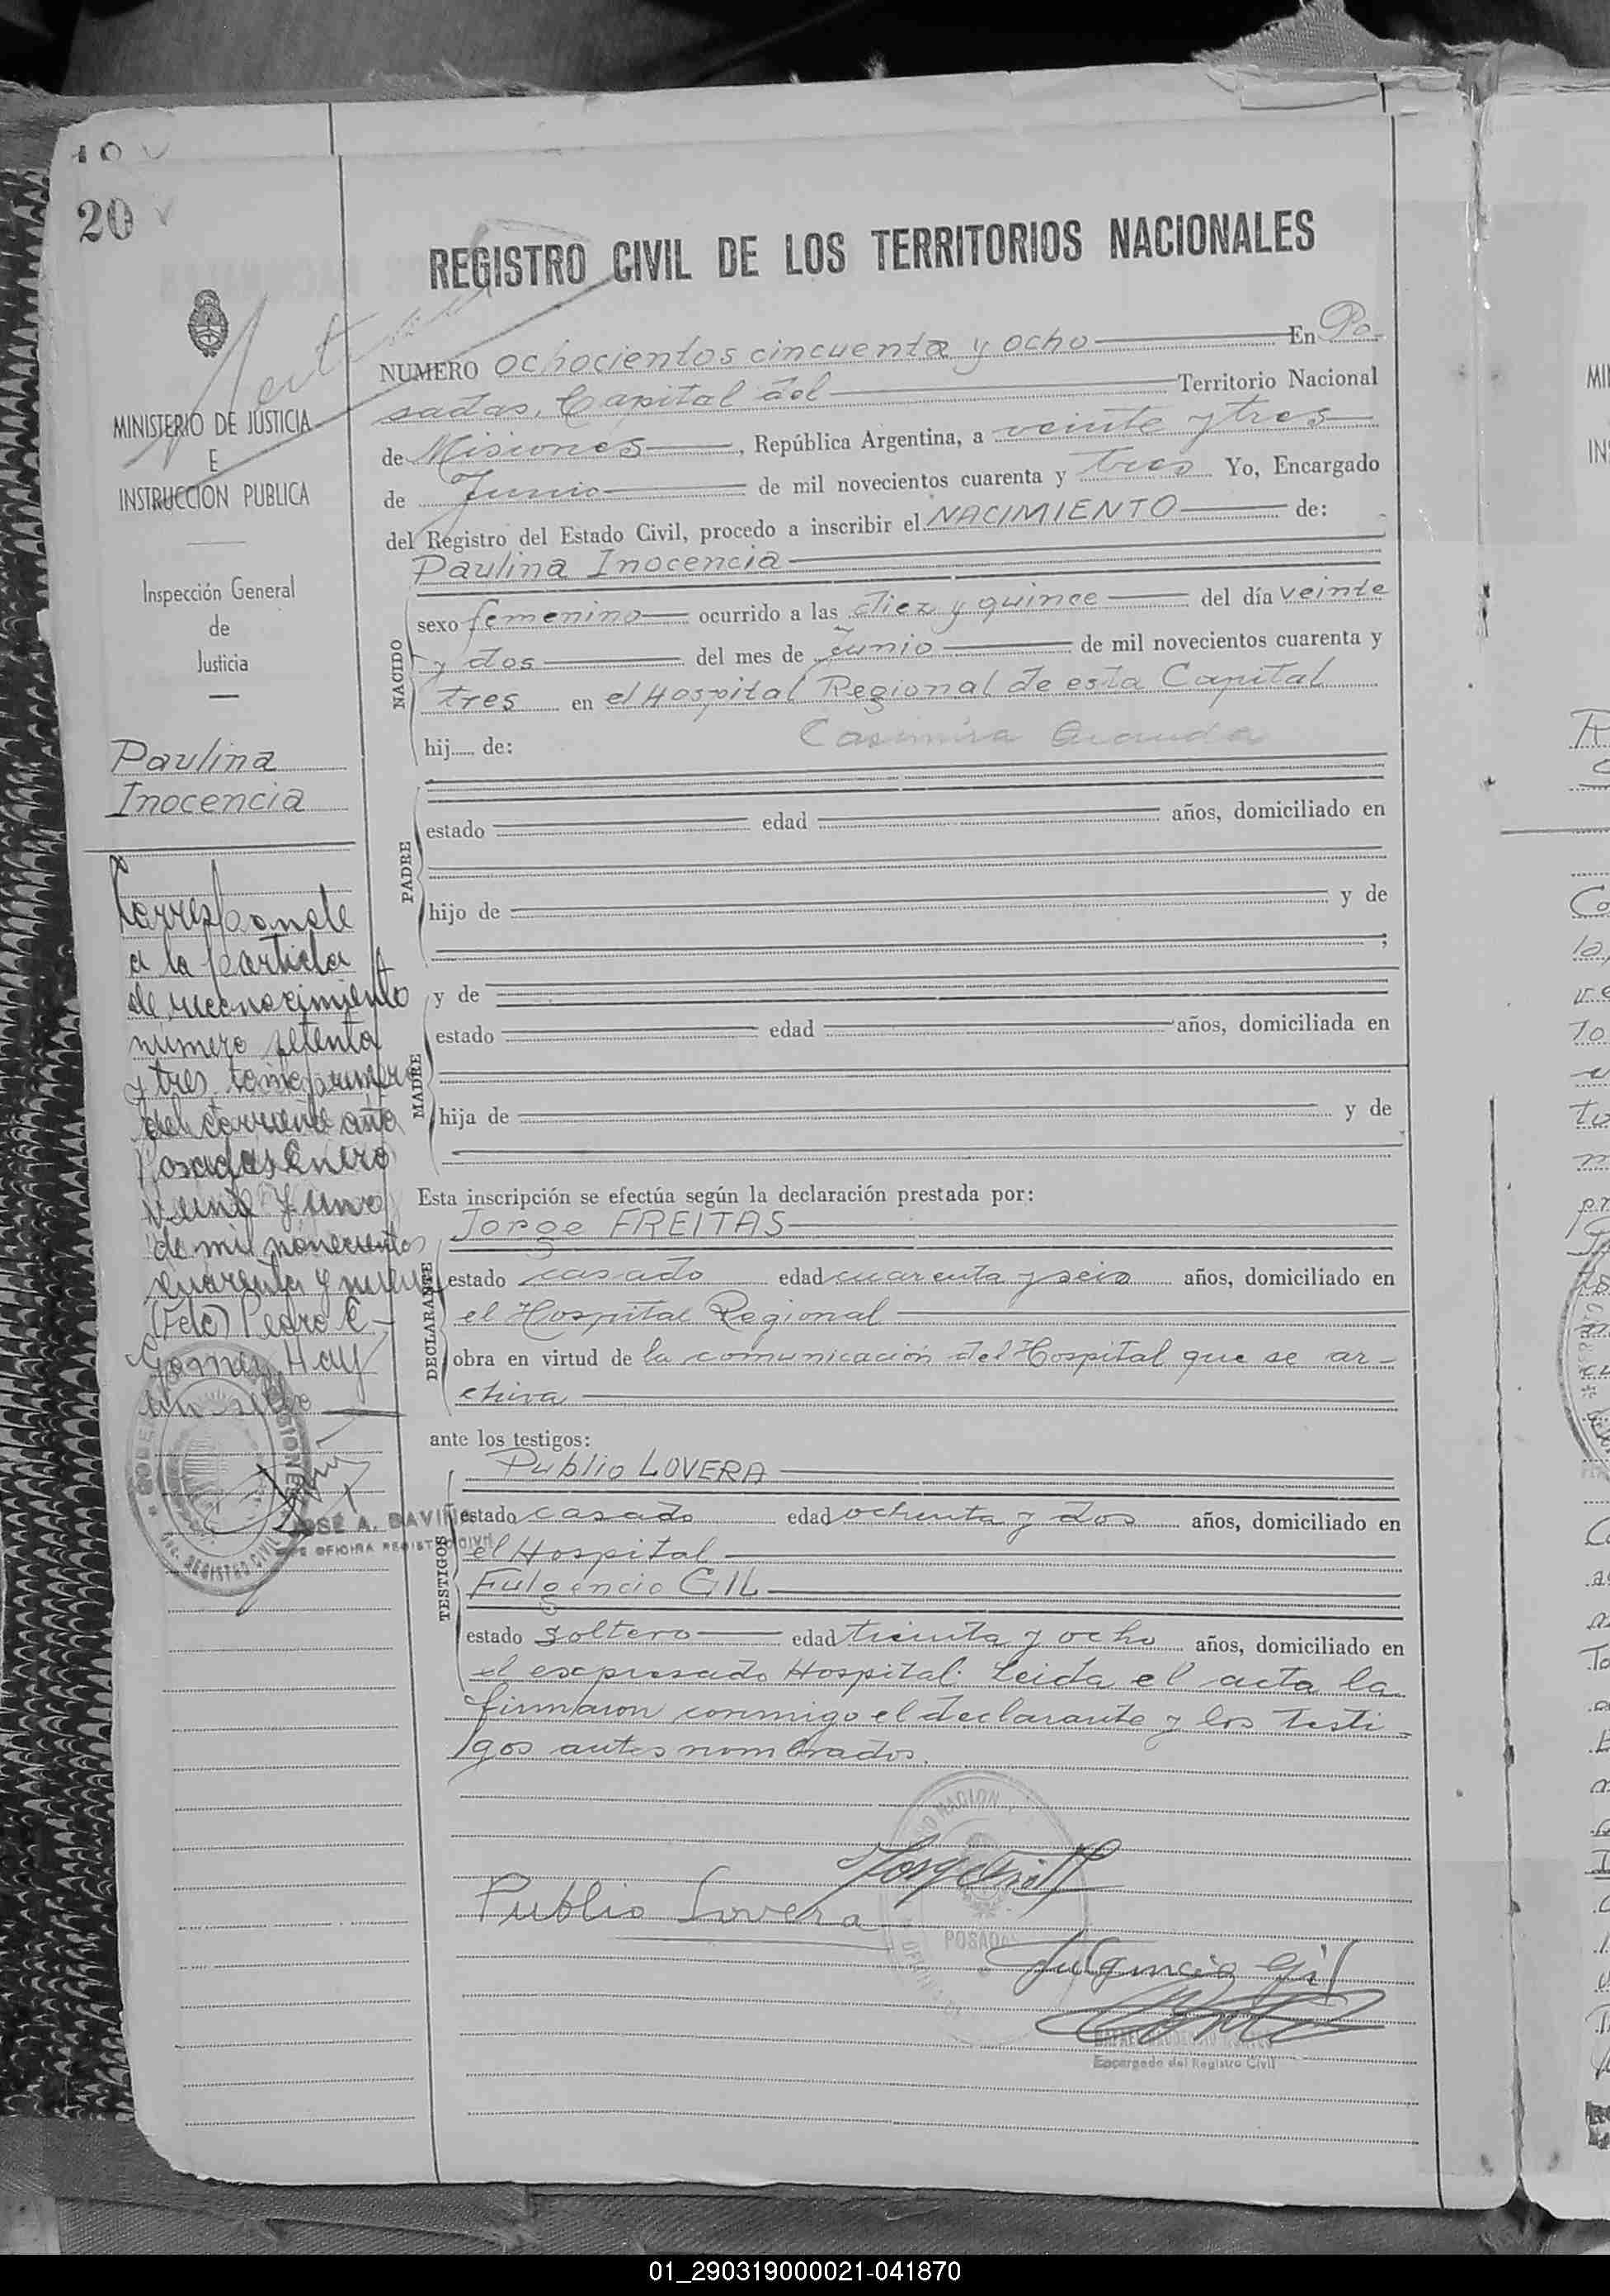 20
REGISTRO CIVIL DE LOS TERRITORIOS NACIONALES
MINISTERIO DE JUSTICIA
E
INSTRUCCION PUBLICA
Inspección General
de
Justicia
Paulina
Inocencia
Corresponde
a la partida
de reconocimiento
número setenta
y tres, tomo primero
del corriente año
Posadas Enero
veinte y uno
de mil novecientos
cuarenta y nueve
(Fdo) Pedro E
Gomez Hay
un sello
JOSÉ A.
OFICINA REGISTRO CIVIL
NUMERO ochocientos cincuenta y ocho En Po-
sadas, Capital del Territorio Nacional
de Misiones, República Argentina, a veinte y tres
de Junio de mil novecientos cuarenta y tres Yo, Encargado
del Registro del Estado Civil, procedo a inscribir el NACIMIENTO de:
Paulina Inocencia
NACIDO
sexo femenino ocurrido a las diez y quince del día veinte
y dos del mes de Junio de mil novecientos cuarenta y
tres en el Hospital Regional de esta Capital
hij..... de: Casimira
PADRE
estado edad años, domiciliado en
hijo de y de
;
MADRE
y de
estado edad años, domiciliada en
hija de y de
Esta inscripción se efectúa según la declaración prestada por:
DECLARANTE
Jorge FREITAS
estado casado edad cuarenta y seis años, domiciliado en
el Hospital Regional
obra en virtud de la comunicación del Hospital que se ar-
chiva
ante los testigos:
TESTIGOS
Publio LOVERA
estado casado edad ochenta y dos años, domiciliado en
el Hospital
Fulgencio GIL
estado soltero edad treinta y ocho años, domiciliado en
el expresado Hospital. Leida el acta la
firmaron conmigo el declarante y los testi-
gos antes nombrados.
Publio Lovera
POSADAS
Fulgencio Gil
Encargado del Registro Civil
01_290319000021-041870